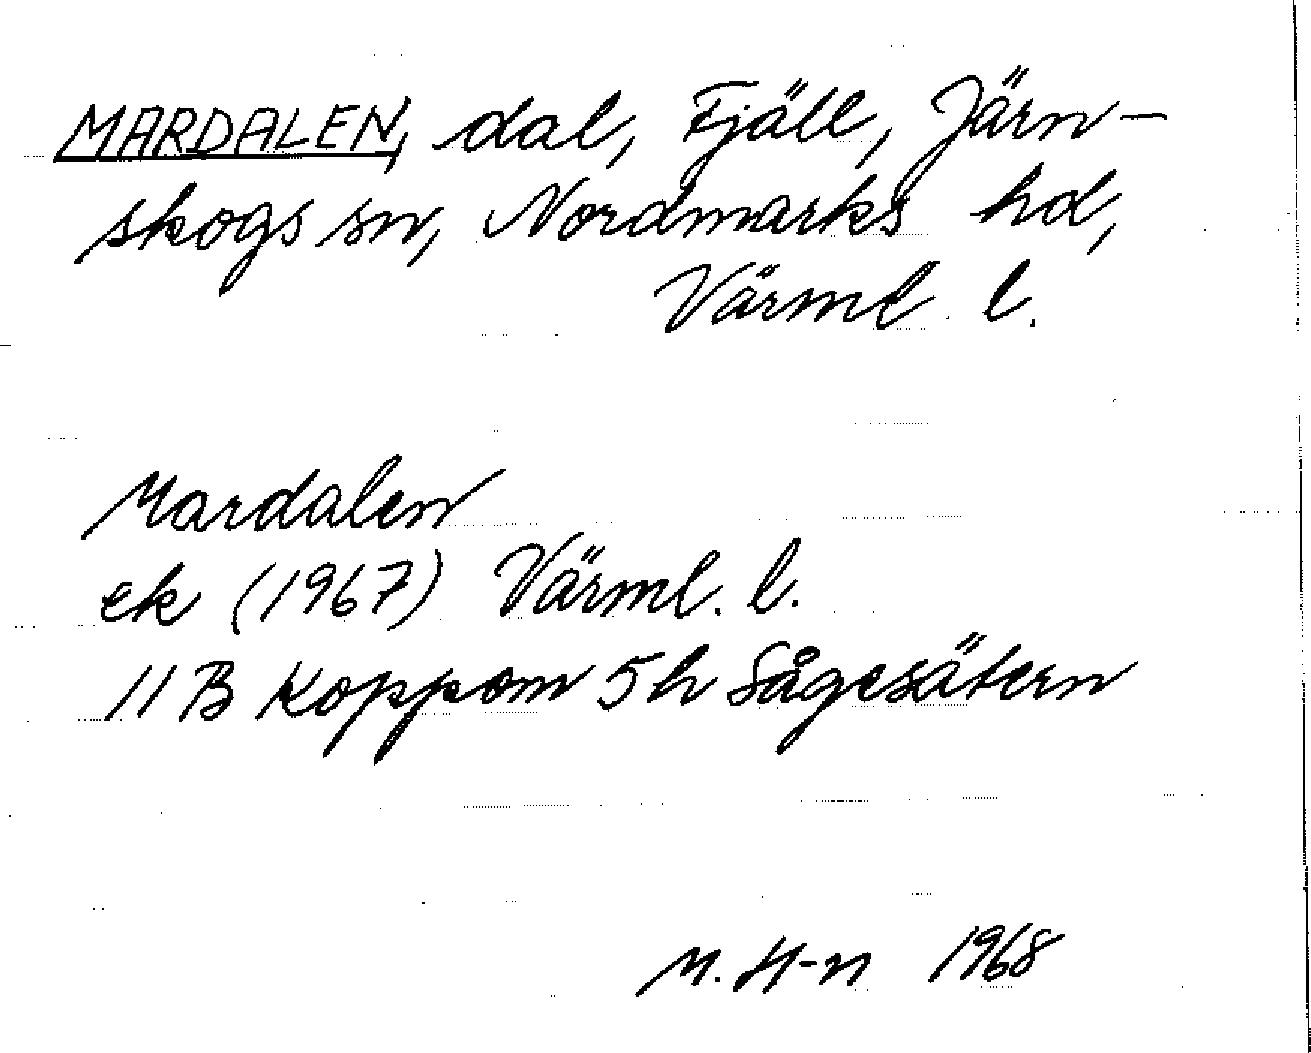 MARDALEN, dal, Fjäll, Järn-
skogs sn, Nordmarks hd,
Värml. l.
Mardalen
ek (1967) Värml. l.
11 B Koppom 5h Sågesätern
M. H-n 1968